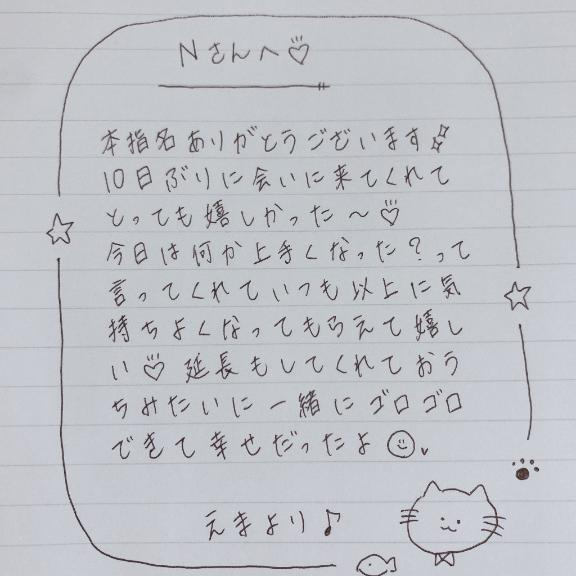 Nさんへ♡
本指名ありがとうございます
10日ぶりに会いに来てくれて
とっても嬉しかった〜♡
今日は何か上手くなった?って
言ってくれていつも以上に気
持ちよくなってもらえて嬉し
い♡ 延長もしてくれておう
ちみたいに一緒にゴロゴロ
できて幸せだったよ
えまより♪